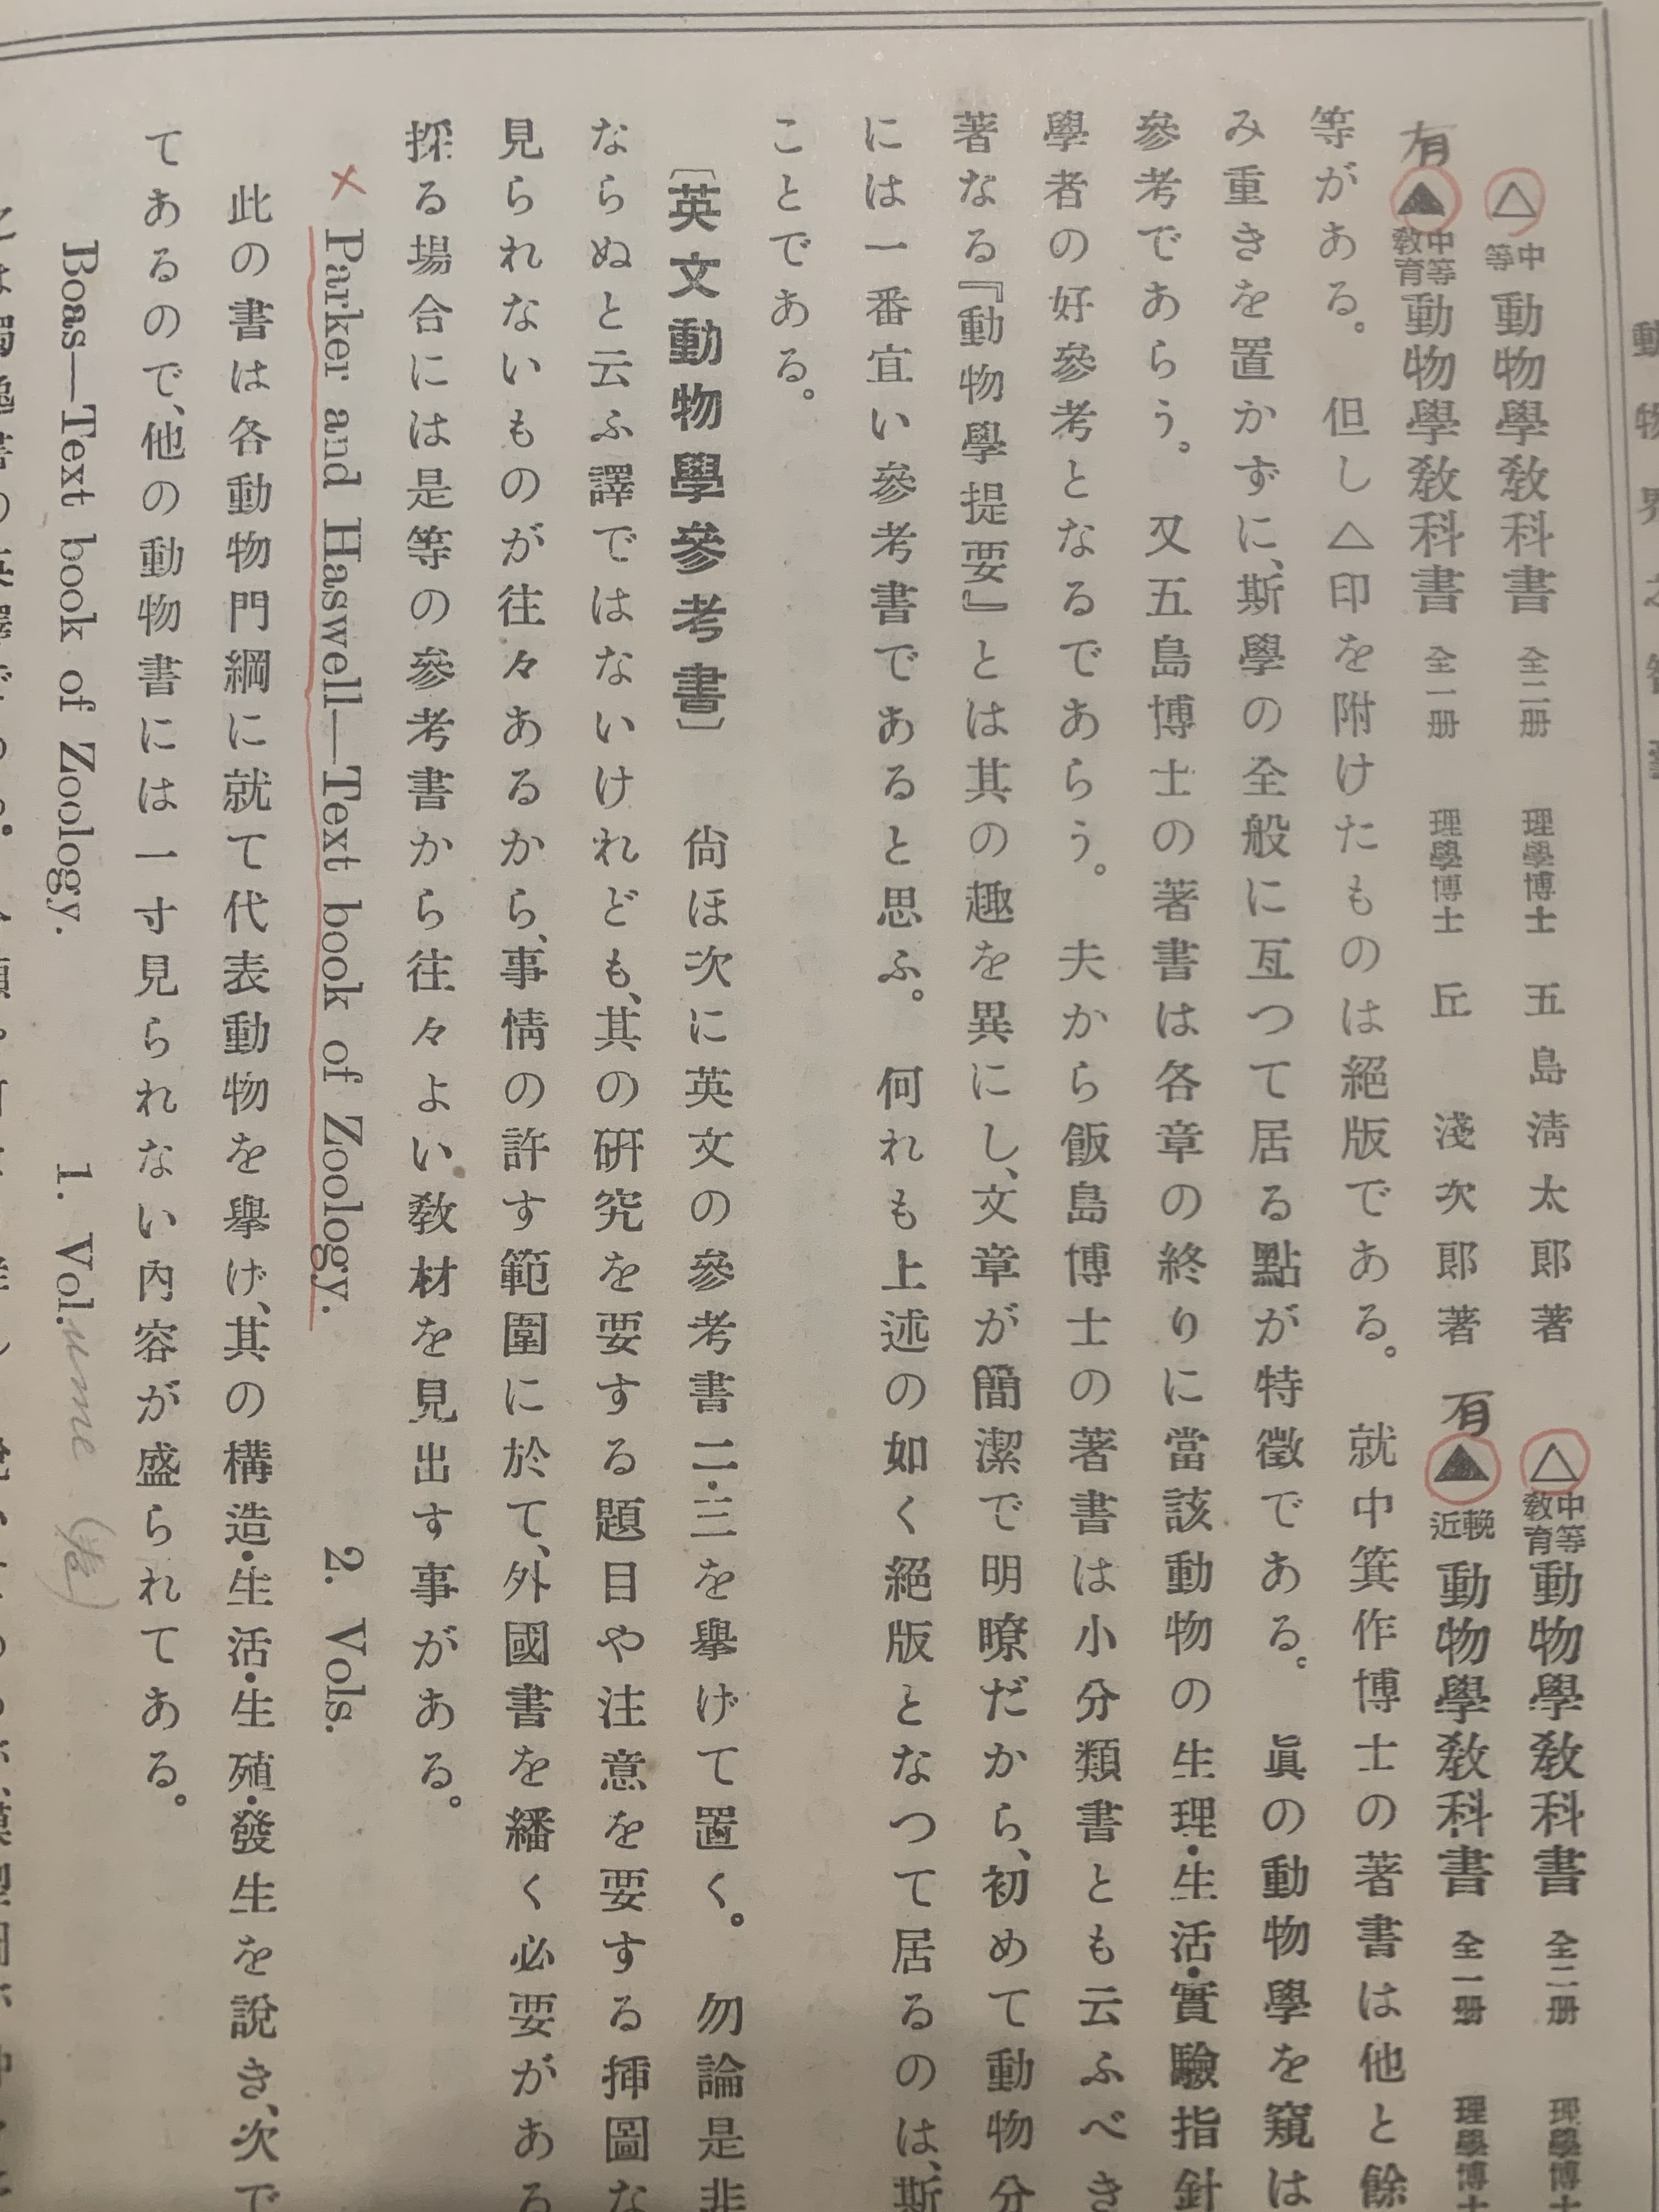 △中等動物學敎科書 全二册 理學博士 五島淸太郎著 △中等敎育動物學敎科書 全二册 理學博士
有
▲中等敎育動物學敎科書 全一册 理學博士 丘 淺次郎著 有 ▲輓近動物學敎科書 全一册 理學博士
等がある。但し△印を附けたものは絕版である。就中箕作博士の著書は他と餘
み重きを置かずに、斯學の全般に亙つて居る點が特徵である。眞の動物學を窺は
參考であらう。又五島博士の著書は各章の終りに當該動物の生理・生活・實驗指針
學者の好參考となるであらう。夫から飯島博士の著書は小分類書とも云ふべき
著なる『動物學提要』とは其の趣を異にし、文章が簡潔で明瞭だから、初めて動物分
には一番宜い參考書であると思ふ。何れも上述の如く絕版となつて居るのは、斯
ことである。
〔英文動物學參考書〕 尙ほ次に英文の參考書二・三を擧げて置く。勿論是非
ならぬと云ふ譯ではないけれども、其の硏究を要する題目や注意を要する揷圖な
見られないものが往々あるから、事情の許す範圍に於て、外國書を繙く必要がある
採る場合には是等の參考書から往々よい敎材を見出す事がある。
× Parker and Haswell—Text book of Zoology. 2. Vols.
此の書は各動物門綱に就て代表動物を擧げ、其の構造・生活・生殖・發生を說き、次で
てあるので、他の動物書には一寸見られない內容が盛られてある。
Boas—Text book of Zoology. 1. Vol. ume